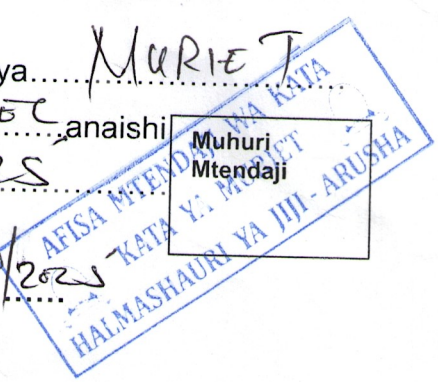 ya........MURIET
........anaishi
Muhuri
Mtendaji
/2025
AFISA MTENDAJI WA KATA
KATA YA MURIET
HALMASHAURI YA JIJI - ARUSHA